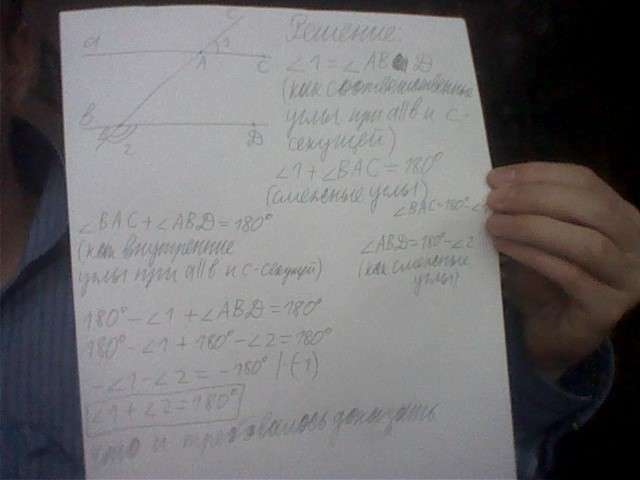 c
a
1
A
C
B
2
D
Решение:
∠1 = ∠ABD
(как соответственные
углы при a||b и c-
секущей)
∠1 + ∠BAC = 180°
(смежные углы)
∠BAC=180°-∠
∠BAC + ∠ABD = 180°
(как внутренние
углы при a||b и c-секущей)
∠ABD=180°-∠2
(как смежные
углы)
180° - ∠1 + ∠ABD = 180°
180° - ∠1 + 180° - ∠2 = 180°
-∠1 - ∠2 = -180° |·(-1)
∠1 + ∠2 = 180°
что и требовалось доказать